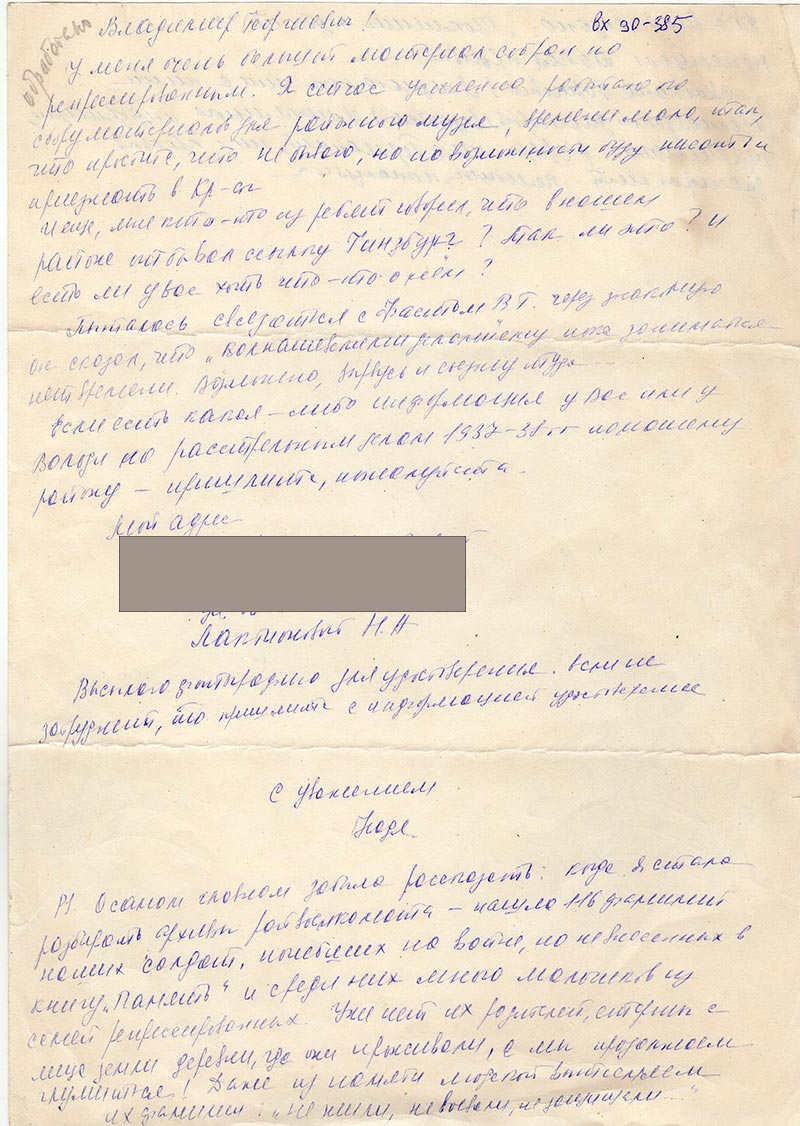 обработано
вх 90-385
Владимир Георгиевич!
У меня очень большой материал собран по
репрессированным. Я сейчас усиленно работаю по
сбору материалов для районного музея, времени мало, так,
что простите, что не много, но по возможности буду писать и
приезжать в Кр-ск
И еще, мне кто-то из ребят говорил, что в нашем
районе отбывал ссылку Гинзбург? Так ли это? и
есть ли у вас хоть что-то о нём?
Пыталась связаться с Фастом В.Г. через знакомую
он сказал, что „Колпашевскими
нет времени. Возможно, вырвусь и съезжу туда
Если есть какая-либо информация у Вас или у
Володи по расстрельным делам 1937-38гг по нашему
району – пришлите, пожалуйста.
Мой адрес
Лактионовой Н.А
Высылаю фотографию для удостоверения. если не
затруднит, то пришлите с информацией удостоверение
С уважением
Надя.
О самом главном забыла рассказать: когда я стала
разбирать архивы райвоенкомата – нашла 116 фамилий
наших солдат, погибших на войне, но не внесенных в
книгу „Память" и среди них много мальчиков из
семей репрессированных. Уже нет их родителей, стёрты с
лица земли деревни, где они проживали, а мы продолжаем
глумиться! Даже из памяти людской вытесняем
их фамилии: „не жили, не воевали, не защищали..."